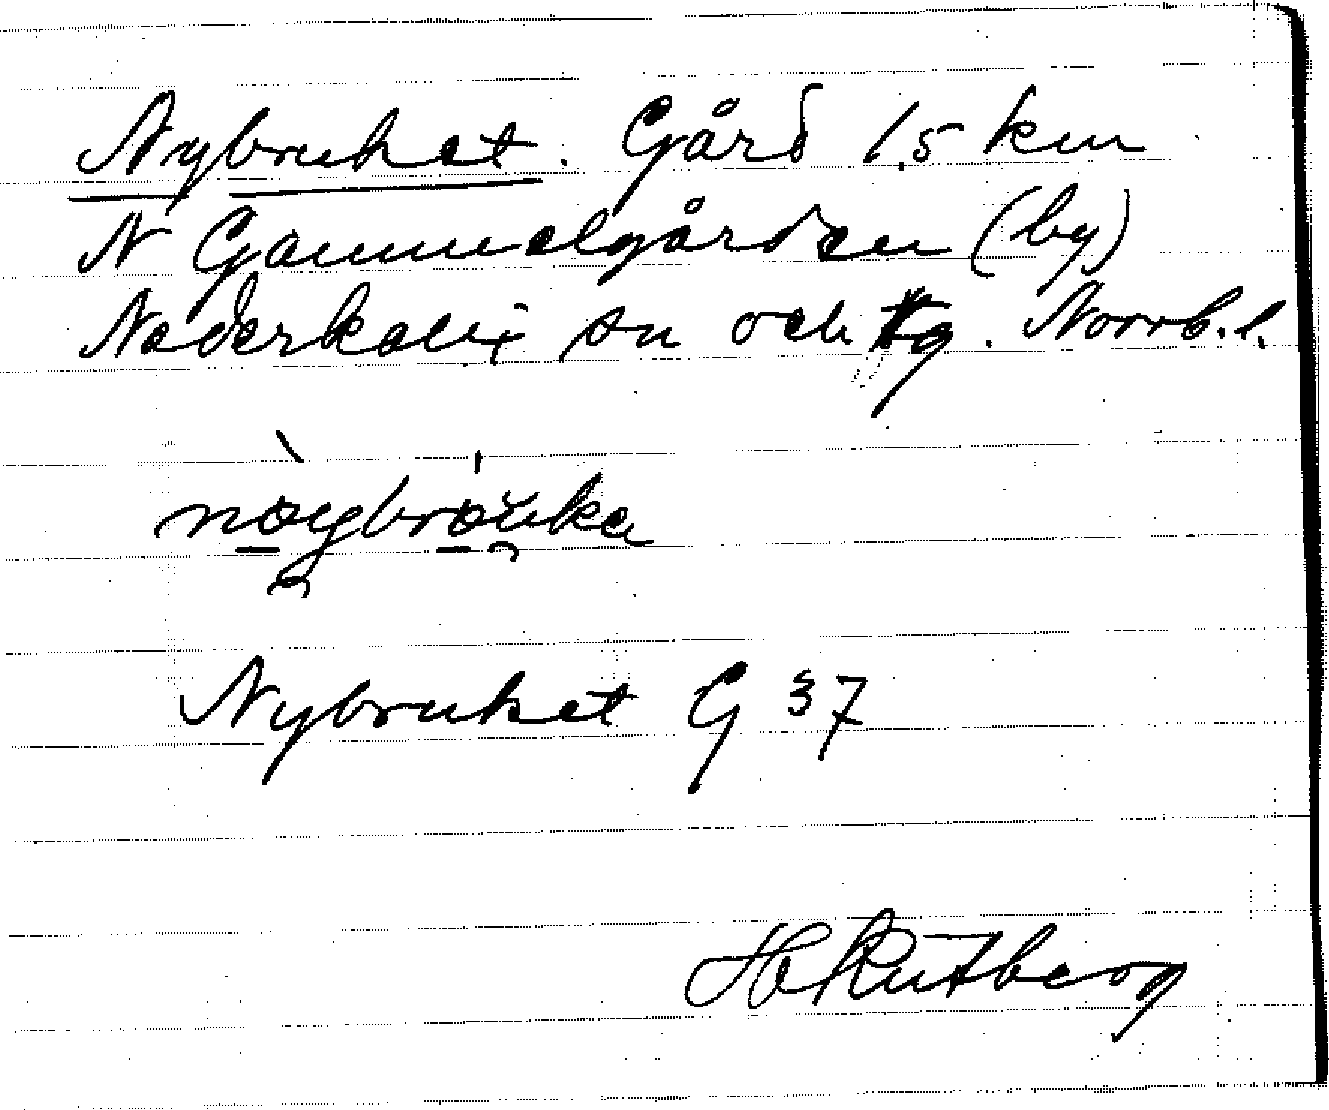 Nybruket. Gård 1,5 km
N Gammelgården (by)
Nederkalix sn och tg. Norrb. l.
Nybruket G 37
H Rutberg